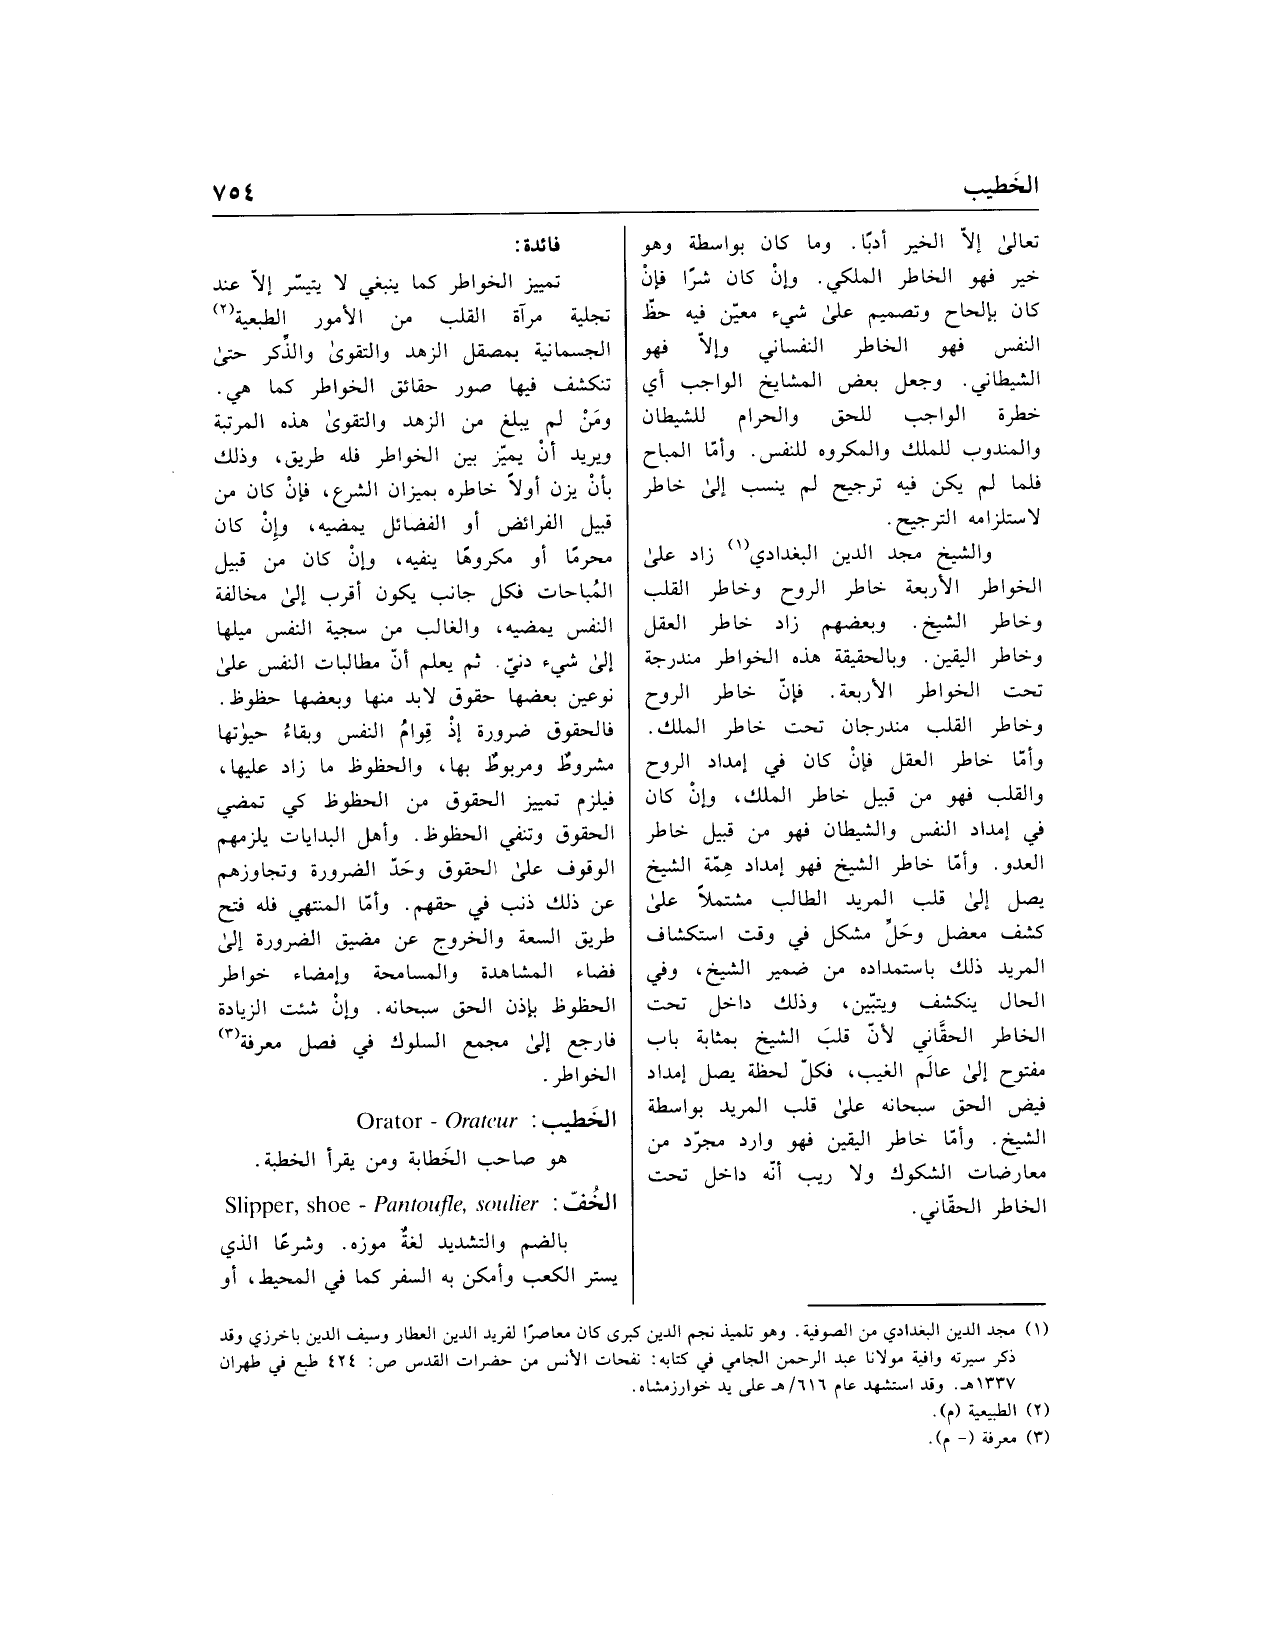 الخَطيب
٧٥٤
تعالىٰ إلاّ الخير أدبًا. وما كان بواسطة وهو
خير فهو الخاطر الملكي. وإنْ كان شرًا فإنْ
كان بإلحاح وتصميم علىٰ شيء معيّن فيه حظّ
النفس فهو الخاطر النفساني وإلاّ فهو
الشيطاني. وجعل بعض المشايخ الواجب أي
خطرة الواجب للحق والحرام للشيطان
والمندوب للملك والمكروه للنفس. وأمّا المباح
فلما لم يكن فيه ترجيح لم ينسب إلىٰ خاطر
لاستلزامه الترجيح.
والشيخ مجد الدين البغدادي(١) زاد علىٰ
الخواطر الأربعة خاطر الروح وخاطر القلب
وخاطر الشيخ. وبعضهم زاد خاطر العقل
وخاطر اليقين. وبالحقيقة هذه الخواطر مندرجة
تحت الخواطر الأربعة. فإنّ خاطر الروح
وخاطر القلب مندرجان تحت خاطر الملك.
وأمّا خاطر العقل فإنْ كان في إمداد الروح
والقلب فهو من قبيل خاطر الملك، وإنْ كان
في إمداد النفس والشيطان فهو من قبيل خاطر
العدو. وأمّا خاطر الشيخ فهو إمداد هِمّة الشيخ
يصل إلىٰ قلب المريد الطالب مشتملاً علىٰ
كشف معضل وحَلِّ مشكل في وقت استكشاف
المريد ذلك باستمداده من ضمير الشيخ، وفي
الحال ينكشف ويتبّين، وذلك داخل تحت
الخاطر الحقَّاني لأنّ قلبَ الشيخ بمثابة باب
مفتوح إلىٰ عالَم الغيب، فكلّ لحظة يصل إمداد
فيض الحق سبحانه علىٰ قلب المريد بواسطة
الشيخ. وأمّا خاطر اليقين فهو وارد مجرّد من
معارضات الشكوك ولا ريب أنّه داخل تحت
الخاطر الحقّاني.
فائدة:
تمييز الخواطر كما ينبغي لا يتيسّر إلاّ عند
تجلية مرآة القلب من الأمور الطبعية(٢)
الجسمانية بمصقل الزهد والتقوىٰ والذِّكر حتىٰ
تنكشف فيها صور حقائق الخواطر كما هي.
ومَنْ لم يبلغ من الزهد والتقوىٰ هذه المرتبة
ويريد أنْ يميّز بين الخواطر فله طريق، وذلك
بأنْ يزن أولاً خاطره بميزان الشرع، فإنْ كان من
قبيل الفرائض أو الفضائل يمضيه، وإنْ كان
محرمًا أو مكروهًا ينفيه، وإنْ كان من قبيل
المُباحات فكل جانب يكون أقرب إلىٰ مخالفة
النفس يمضيه، والغالب من سجية النفس ميلها
إلىٰ شيء دنيّ. ثم يعلم أنّ مطالبات النفس علىٰ
نوعين بعضها حقوق لابد منها وبعضها حظوظ.
فالحقوق ضرورة إذْ قِوامُ النفس وبقاءُ حيوٰتها
مشروطٌ ومربوطٌ بها، والحظوظ ما زاد عليها،
فيلزم تمييز الحقوق من الحظوظ كي تمضي
الحقوق وتنفي الحظوظ. وأهل البدايات يلزمهم
الوقوف علىٰ الحقوق وحَدّ الضرورة وتجاوزهم
عن ذلك ذنب في حقهم. وأمّا المنتهي فله فتح
طريق السعة والخروج عن مضيق الضرورة إلىٰ
فضاء المشاهدة والمسامحة وإمضاء خواطر
الحظوظ بإذن الحق سبحانه. وإنْ شئت الزيادة
فارجع إلىٰ مجمع السلوك في فصل معرفة(٣)
الخواطر.
الخَطيب: Orator - Orateur
هو صاحب الخَطابة ومن يقرأ الخطبة.
الخُفّ: Slipper, shoe - Pantoufle, soulier
بالضم والتشديد لغةٌ موزه. وشرعًا الذي
يستر الكعب وأمكن به السفر كما في المحيط، أو
(١) مجد الدين البغدادي من الصوفية. وهو تلميذ نجم الدين كبرى كان معاصرًا لفريد الدين العطار وسيف الدين باخرزي وقد
ذكر سيرته وافية مولانا عبد الرحمن الجامي في كتابه: نفحات الأنس من حضرات القدس ص: ٤٢٤ طبع في طهران
١٣٣٧هـ. وقد استشهد عام ٦١٦/هـ على يد خوارزمشاه.
(٢) الطبيعية (م).
(٣) معرفة (- م).